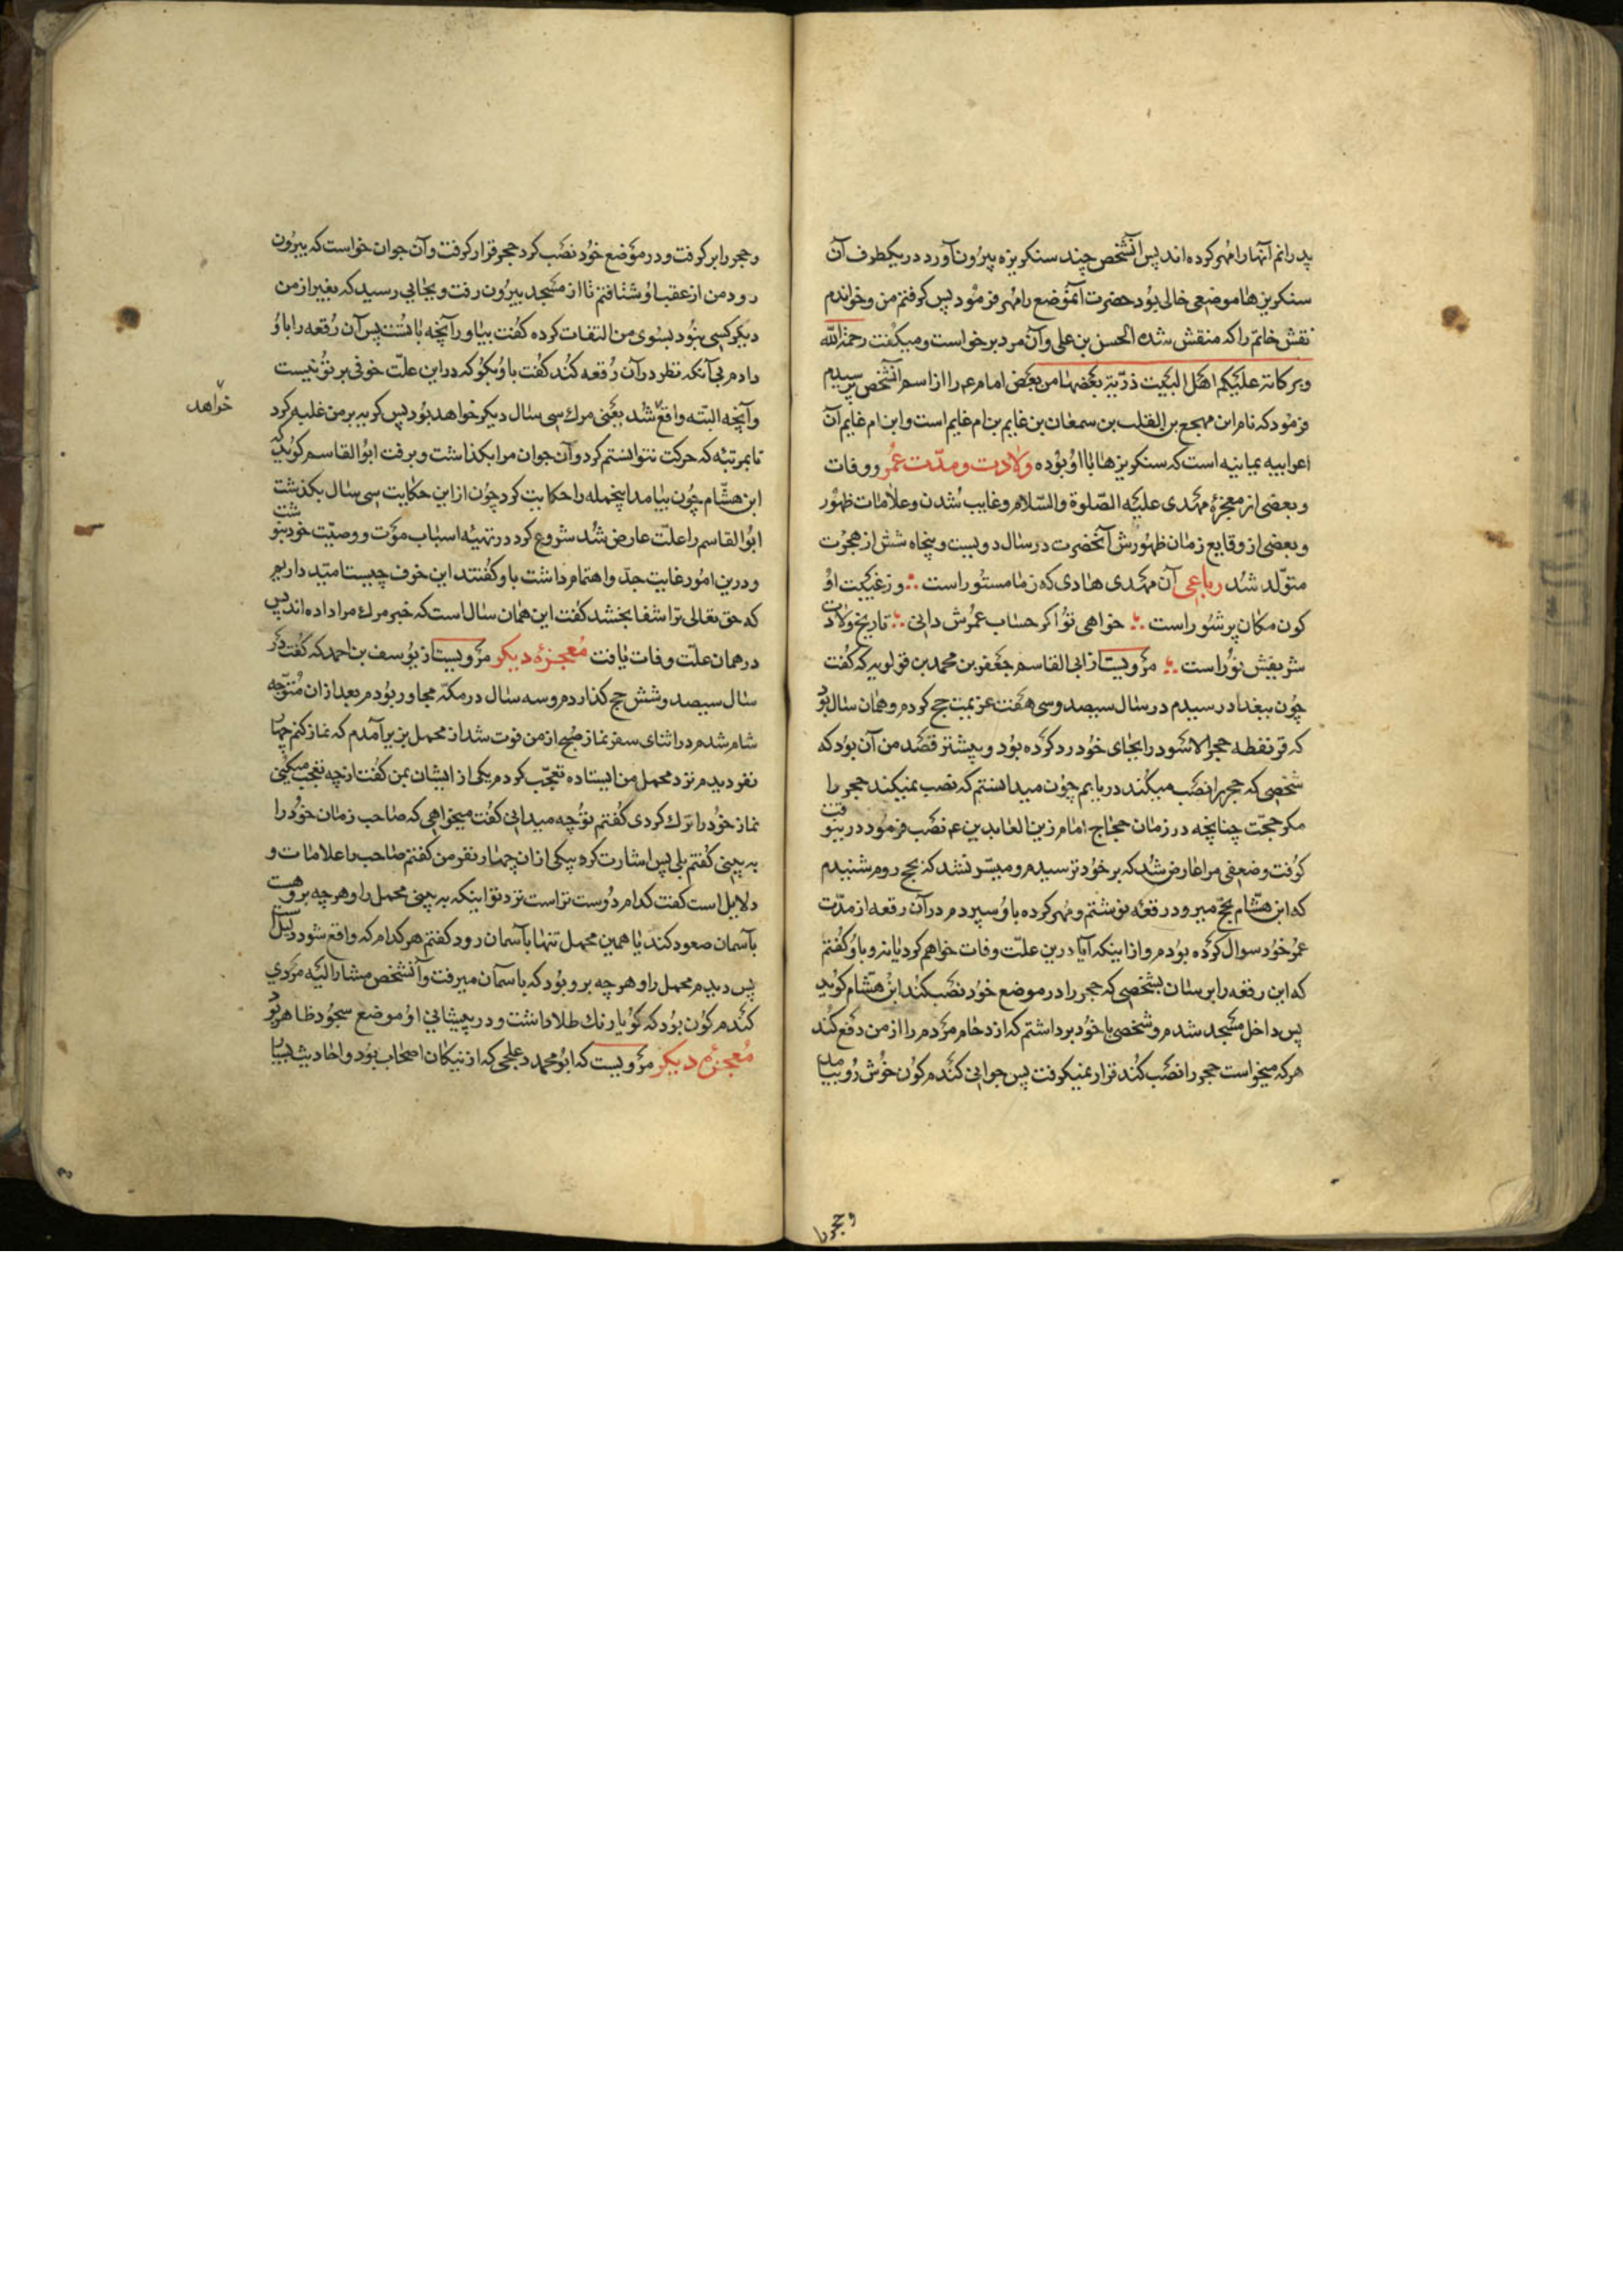 پدرانم آنها را مهر کرده اند پس آنشخص چند سنکریزه بیرون آورد در یکطرف آن
سنکریزها موضعی خالی بود حضرت آنموضع را مهر فرمود پس کرفتم من و خواندم
نقش خاتم را که منقش شده الحسن بن علی وآن مرد برخواست ومیکفت رحمة الله
وبرکاته علیکم اهل البیت ذریة بعضها من بعض امام ع را از اسم آنشخص پرسیدم
فرمود که نام ابن مهجع بن الفلب بن سمعان بن غایم بن ام غایم است وابن ام غایم آن
اعرابیه یمانیه است که سنکریزها با او بوده ولادت ومدت عمر ووفات
وبعضی از معجزهٔ مهدی علیه الصلوة والسلام وغایب شدن وعلامات ظهور
وبعضی از وقایع زمان ظهورش آنحضرت در سال دویست وپنجاه شش از هجرت
متولد شد رباعی آن مهدی هادی که زما مستور است ∴ وز غیبت او
کون مکان پر شور است ∴ خواهی تو اکر حساب عمرش دانی ∴ تاریخ ولادت
شریفش نور است ∴ مرویست از ابی القاسم جعفر بن محمد بن قولویه که کفت
چون ببغداد رسیدم در سال سیصد وسی هفت عزیمت حج کردم وهمان سال بود
که قرنفطه حجر الاسود را بجای خود رد کرده بود وبیشتر قصد من آن بود که
شخصی که حجر را نصب میکند دریابم چون میدانستم که نصب نمیکند حجر را
مکر حجت چنانچه در زمان حجاج امام زین العابدین ع نصب فرمود در بیوقت
کوفت وضعفی مرا عارض شد که بر خود ترسیدم ومیسر نشد که بحج روم شنیدم
که ابن هشام بحج میرود رقعه نوشتم ومهر کرده باو سپردم در آن رقعه از مدت
عمر خود سوال کرده بودم واز اینکه آیا درین علت وفات خواهم کرد یا نه وباو کفتم
که این رقعه را برسان بشخصی که حجر را در موضع خود نصب کند ابن هشام کوید
پس داخل مسجد شدم وشخصی با خود برداشتم که ازدحام مردم را از من دفع کند
هر که میخواست حجر را نصب کند قرار نمیکرفت پس جوانی کندم کون خوش رو بیامد
وحجر را
وحجر را بر کرفت ودر موضع خود نصب کرد حجر قرار کرفت وآن جوان خواست که بیرون
رود من از عقب او شتافتم تا از مسجد بیرون رفت وبجایی رسید که بغیر از من
دیکر کسی نبود بسوی من التفات کرده کفت بیاور آنچه با تست پس آن رقعه را باو
دادم بی آنکه نظر در آن رقعه کند کفت باو بکو که در این علت خوفی بر تو نیست
وآنچه البته واقع شد یعنی مرک سی سال دیکر خواهد بود پس کریه بر من غلبه کرد
خواهد
تا بمرتبهٔ که حرکت نتوانستم کرد وآن جوان مرا بکذاشت وبرفت ابو القاسم کوید که
ابن هشام چون بیامد اینجمله را حکایت کرد چون از این حکایت سی سال بکذشت
ابو القاسم را علت عارض شد شروع کرد در تهیهٔ اسباب موت ووصیت خود بنوشت
ودرین امور غایت جد واهتمام داشت باو کفتند این خوف چیست امید داریم
که حق تعالی ترا شفا بخشد کفت این همان سال است که خبر مرک مرا داده اند پس
در همان علت وفات یافت معجزهٔ دیکر مرویست از یوسف بن احمد که کفت در
سال سیصد وشش حج کذاردم وسه سال در مکه مجاور بودم بعد از ان متوجه
شام شدم در اثنای سفر نماز صبح از من فوت شد از محمل بزیر آمدم که نماز کنم چهار
نفر دیدم نزد محمل من ایستاده تعجب کردم یکی از ایشان بمن کفت از چه تعجب میکنی
نماز خود را ترک کردی کفتم تو چه میدانی کفت میخواهی که صاحب زمان خود را
به بینی کفتم بلی پس اشارت کرد بیکی از ان چهار نفر من کفتم صاحب را علامات و
دلایل است کفت کدام دوست تر است نزد تو اینکه به بینی محمل را وهر چه بروهست
بآسمان صعود کند یا همین محمل تنها بآسمان رود کفتم هر کدام که واقع شود دلیل است
پس دیدم محمل را وهر چه برو بود که باسمان میرفت وآنشخص مشار الیه مردی
کندم کون بود که کویا رنک طلا داشت ودر پیشانی او موضع سجود ظاهر بود
معجزهٔ دیکر مرویست که ابو محمد دعلجی که از نیکان اصحاب بود واحادیث بسیار